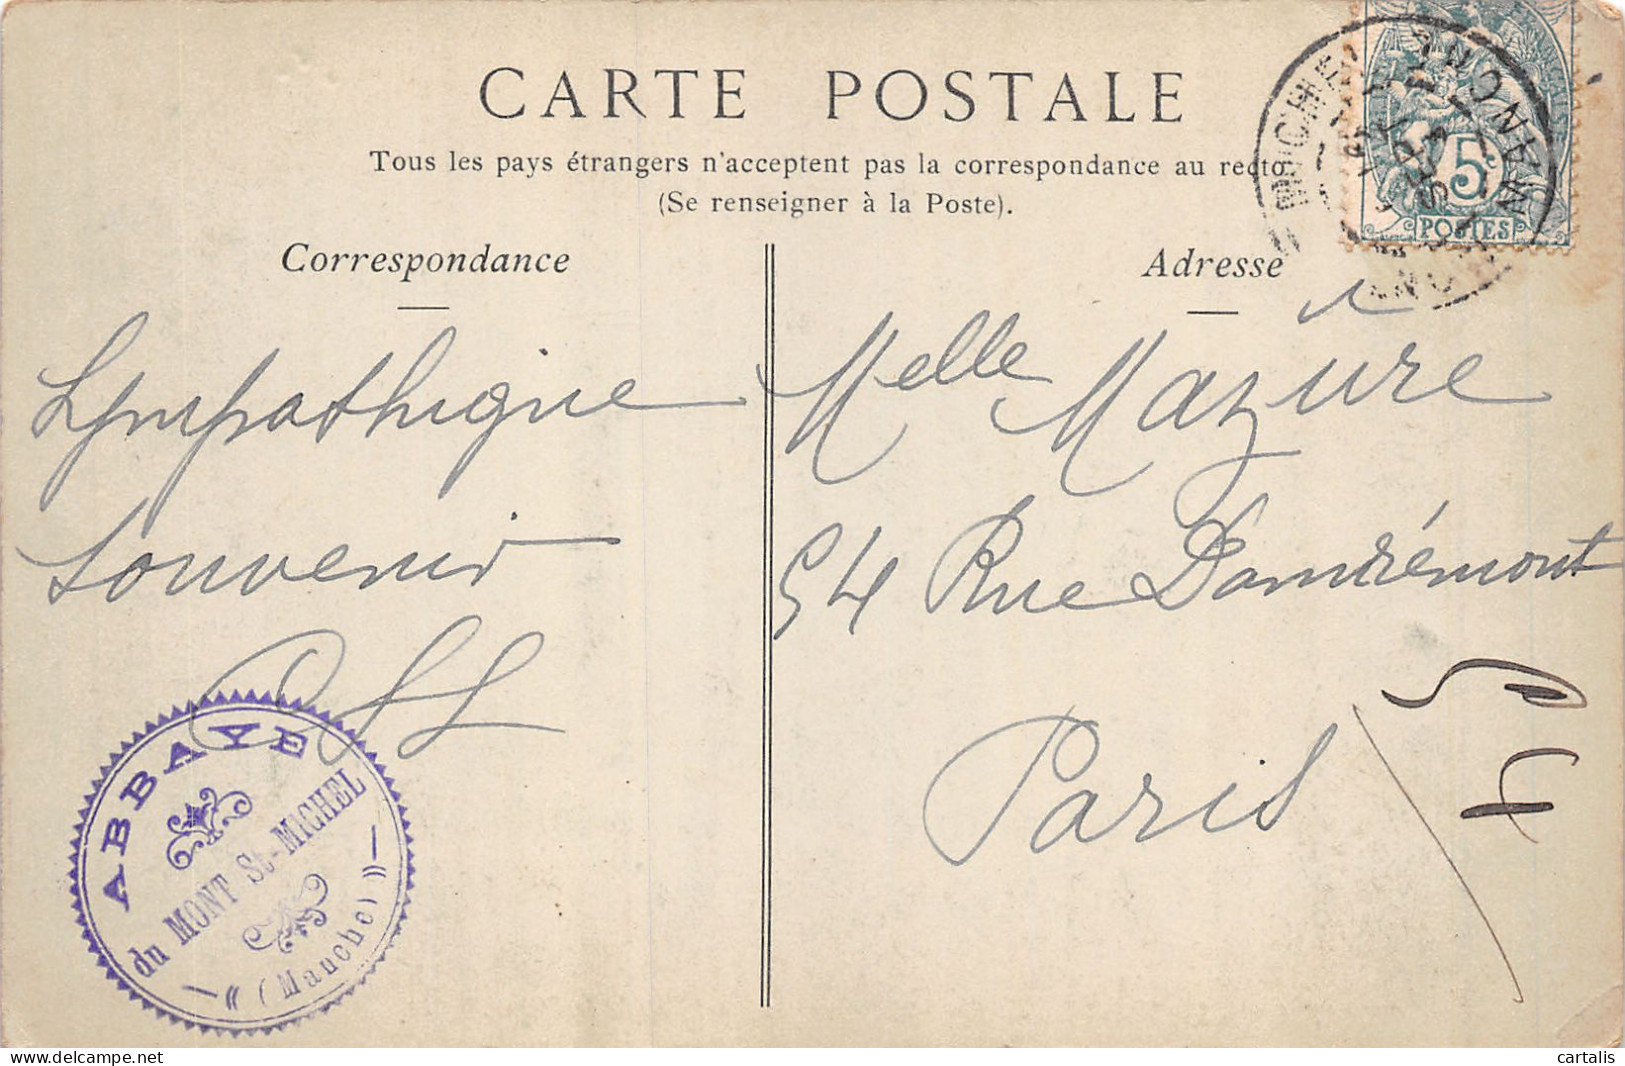 CARTE POSTALE
Tous les pays étrangers n'acceptent pas la correspondance au recto
(Se renseigner à la Poste).
Correspondance
Adresse
Sympathique
Souvenir
Melle Mazure
54 Rue Damrémont
Paris
54
5c
POSTES
MICHEL
MANCHE
ABBAYE
du MONT St-MICHEL
(Manche)
cartalis